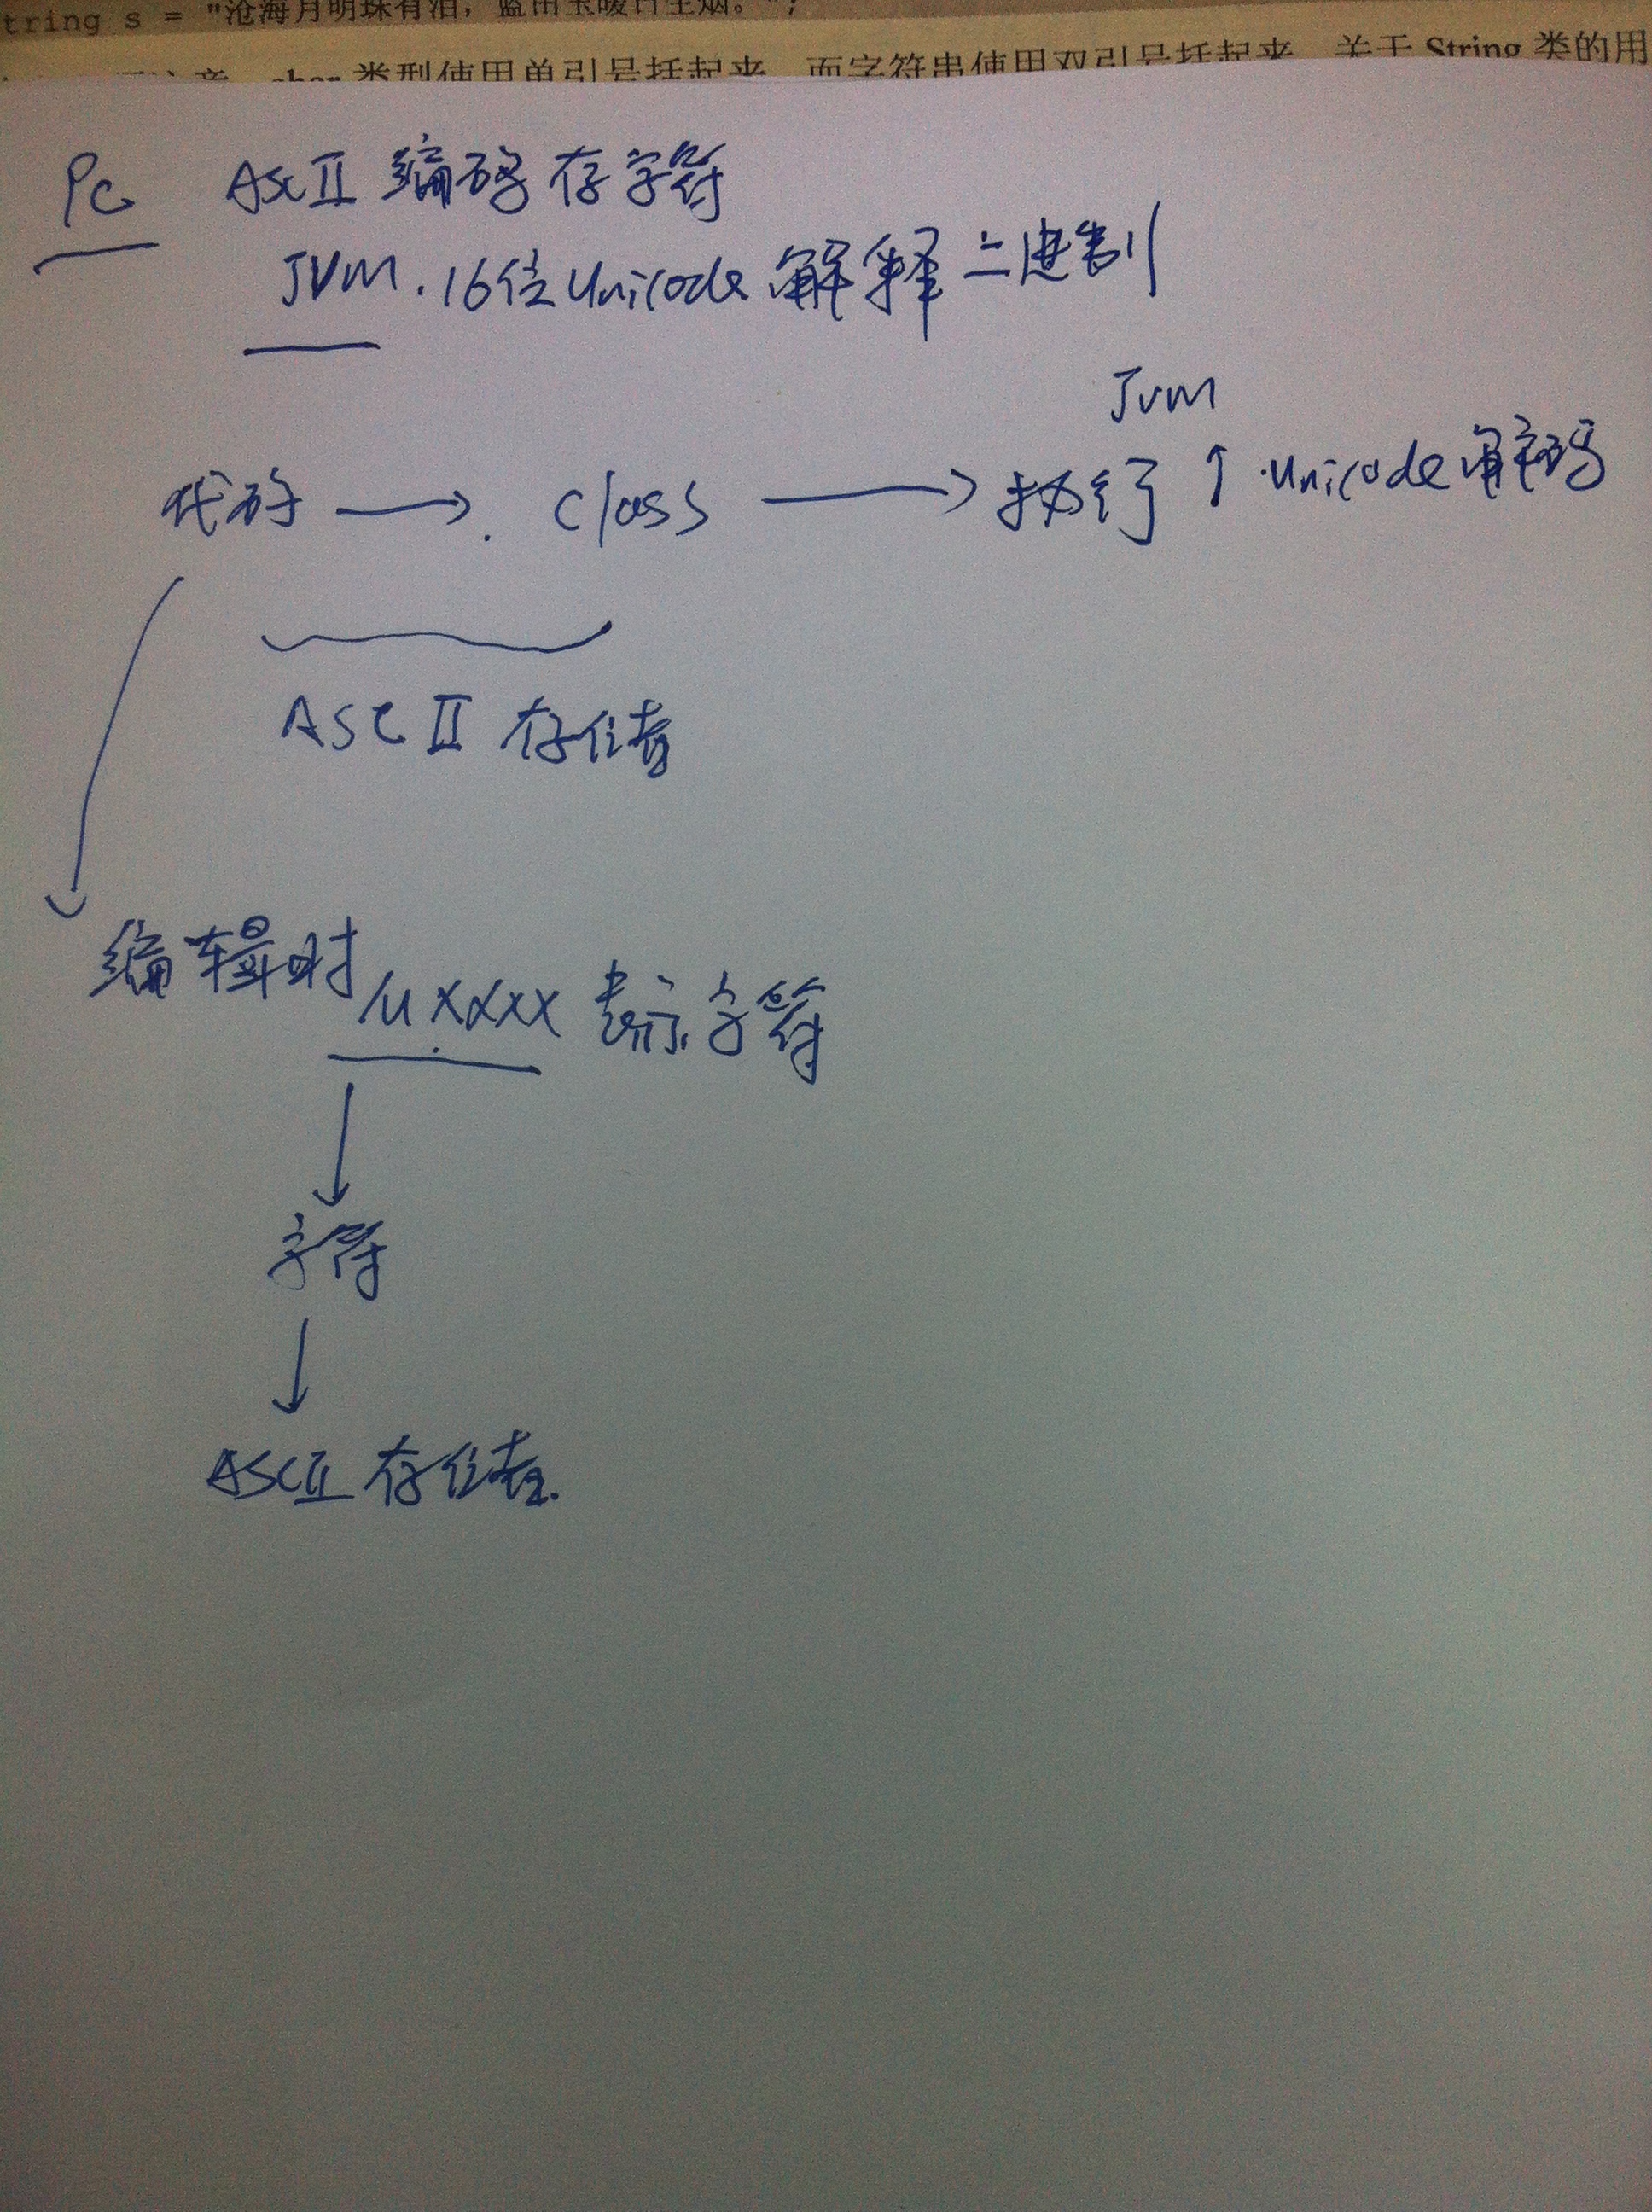 tring s = "沧海月明珠有泪，蓝田玉暖日生烟。";
char 类型使用单引号括起来，而字符串使用双引号括起来。关于 String 类的用
PC ASCII 编码存字符
JVM. 16位Unicode 解释二进制
JVM
代码 → . class → 执行 ↑ Unicode解码
ASCII 存储着
编辑时 \uXXXX 表示字符
↓
字符
↓
ASCII 存储着.